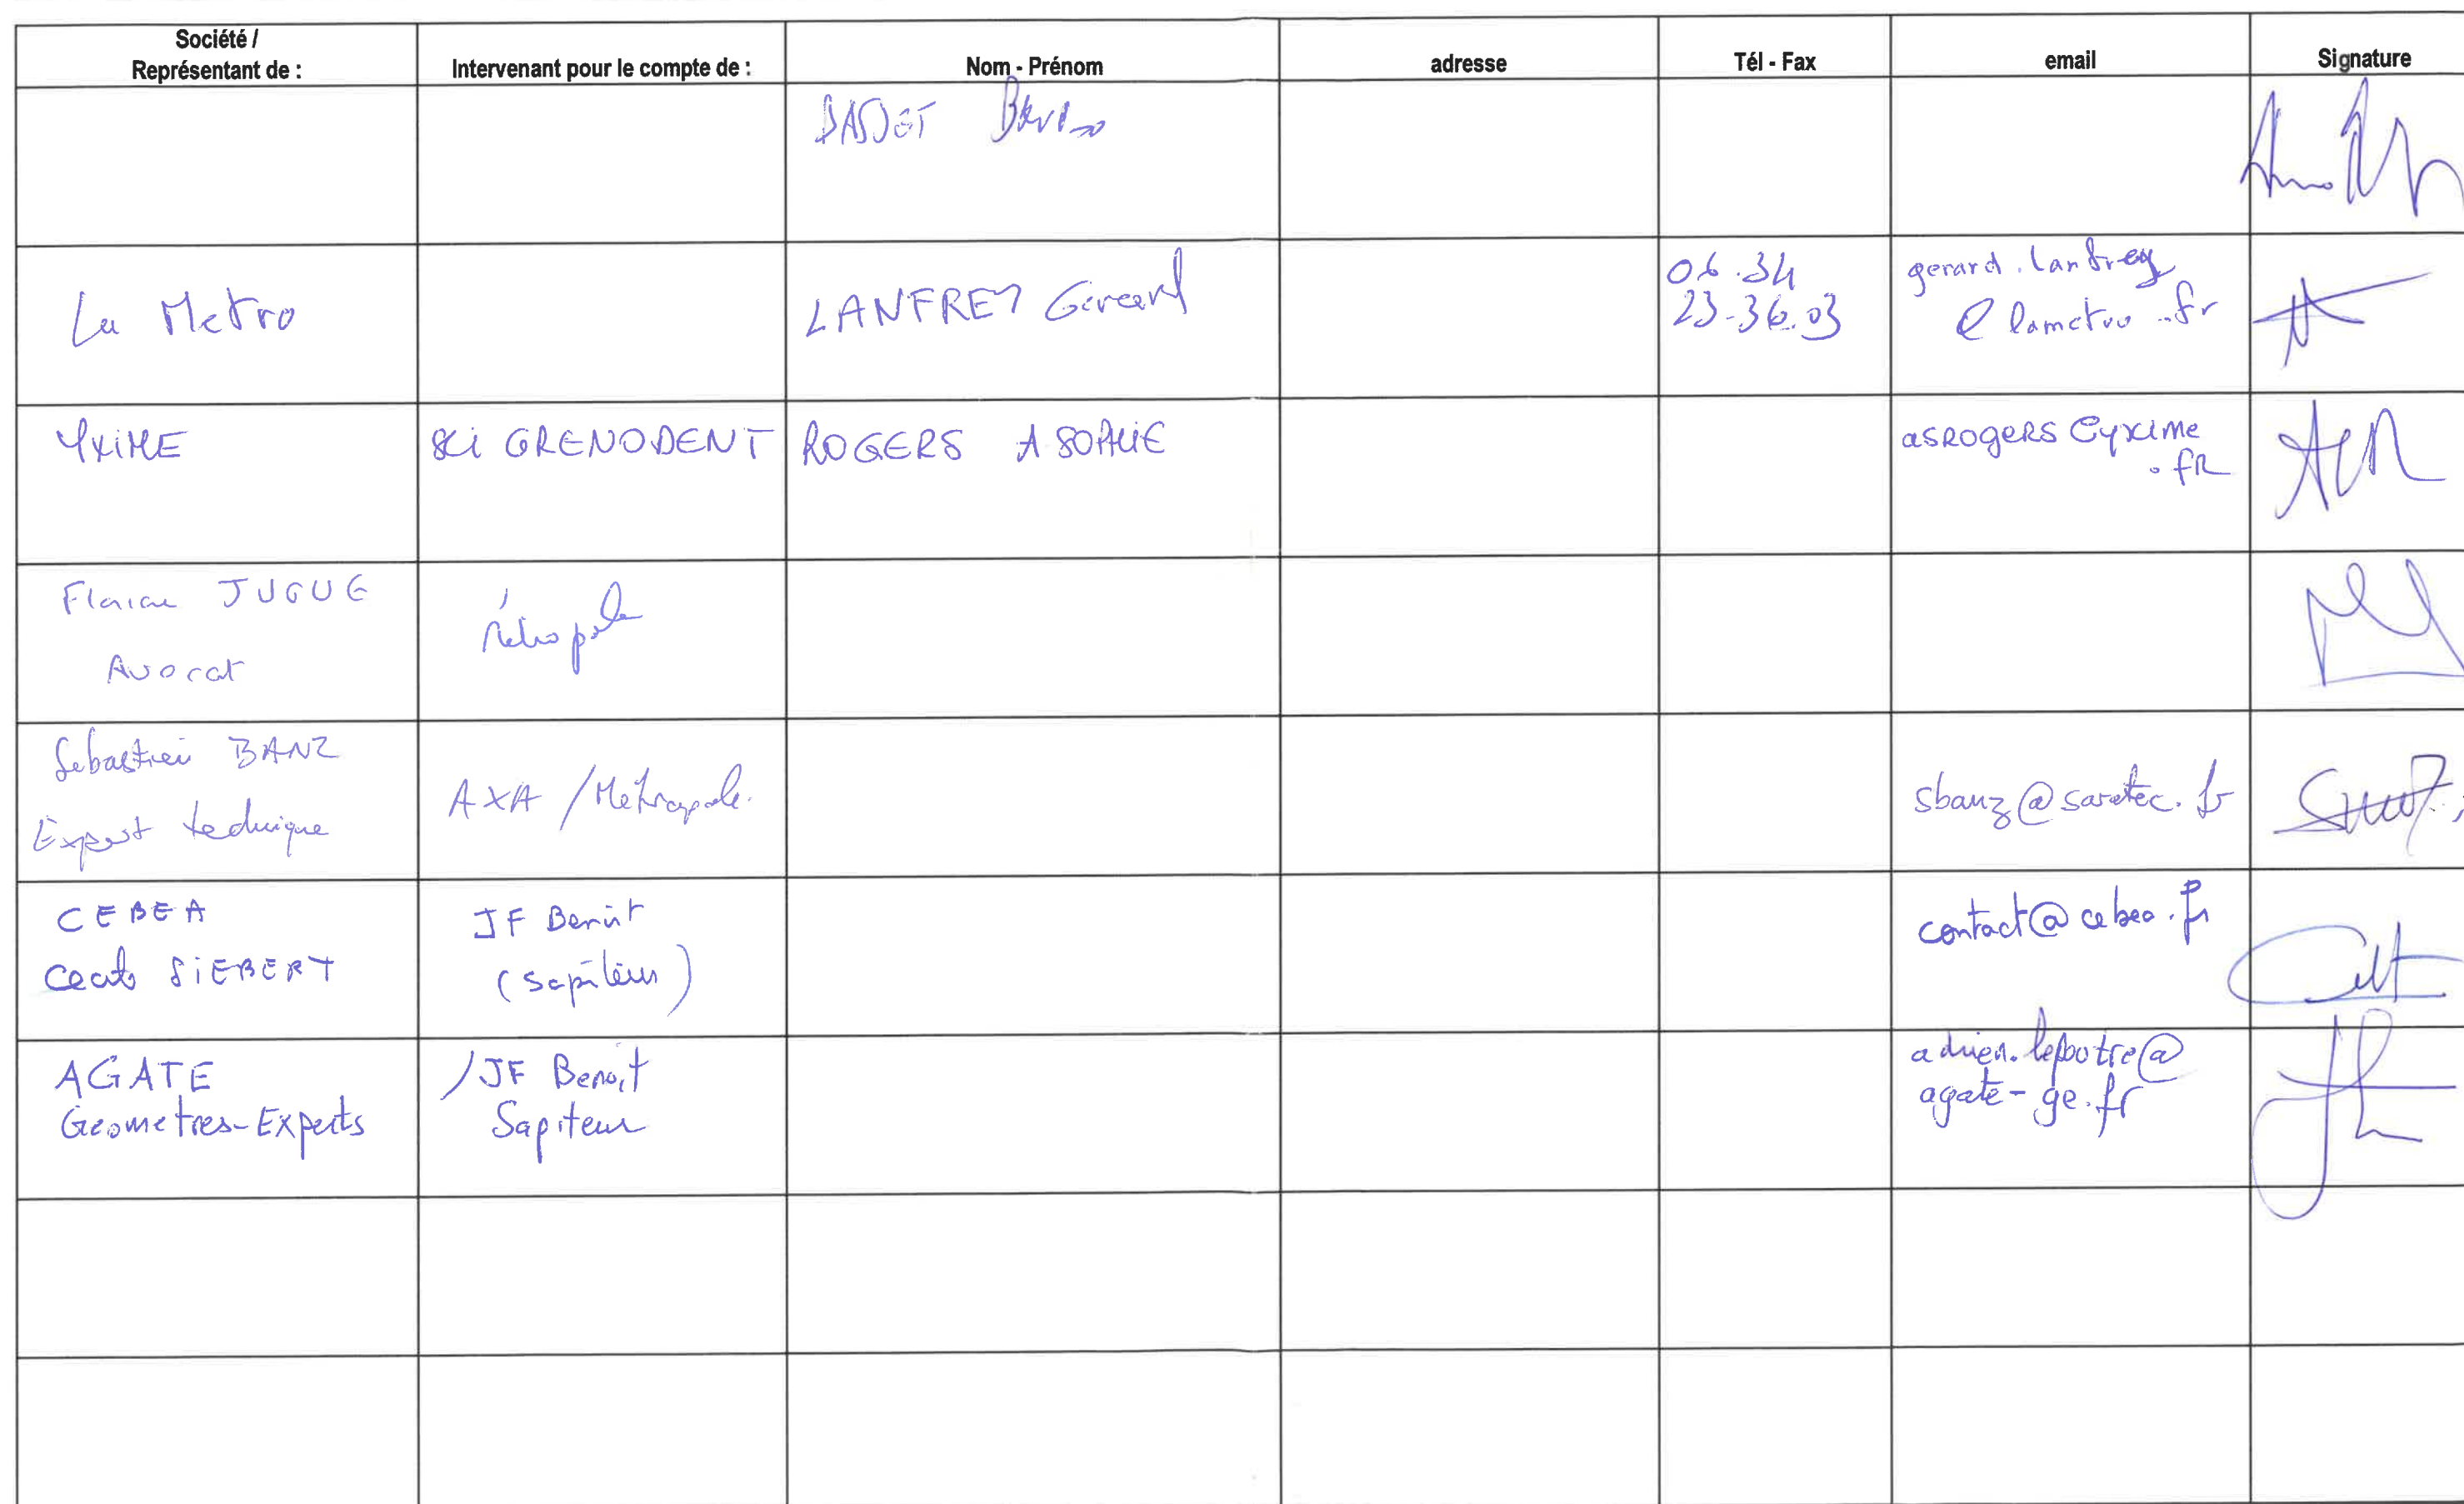 Société /
Représentant de :
Intervenant pour le compte de :
Nom - Prénom
adresse
Tél - Fax
email
Signature
La Metro
LANFREY Gérard
06.34
23.36.03
gerard.lanfrey
@lametro.fr
YXIME
SCi GRENODENT
ROGERS A SOPHIE
asROGERS @yxime
.fR
Florian JUGUE
Avocat
Métropole
Sebastien BANZ
Expert technique
AXA / Métropole.
sbanz@saretec.fr
CEBEA
SiEBERT
JF Benoit
(sapiteur)
contact@cebea.fr
AGATE
Géometres-Experts
/JF Benoit
Sapiteur
adrien.lepoutre@
agate-ge.fr